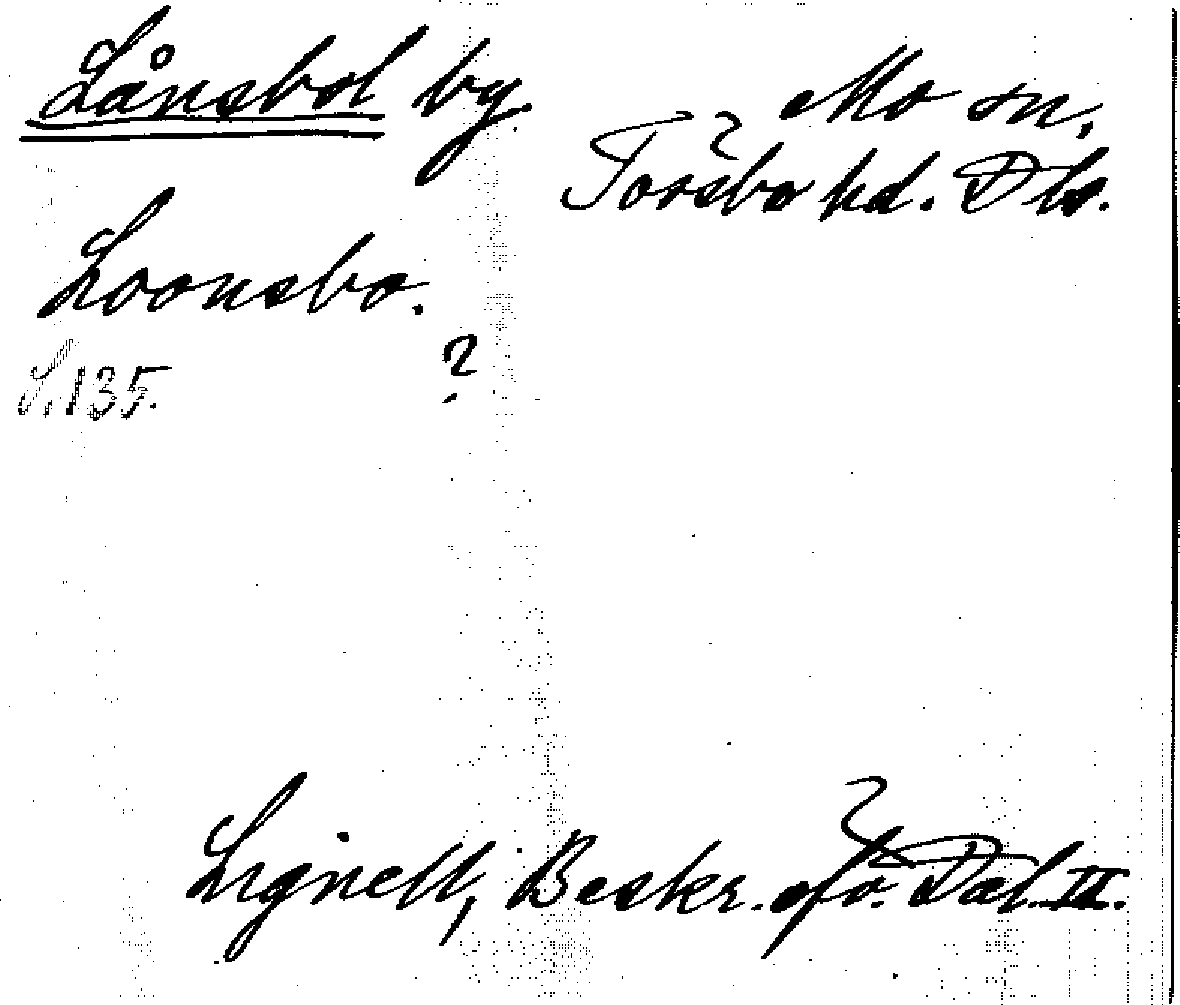 Lånsbol by. Mo sn,
Tössbo hd. Dls.
Loonsbo.
S. 135. ?
Lignell, Beskr. öfv. Dal. II.